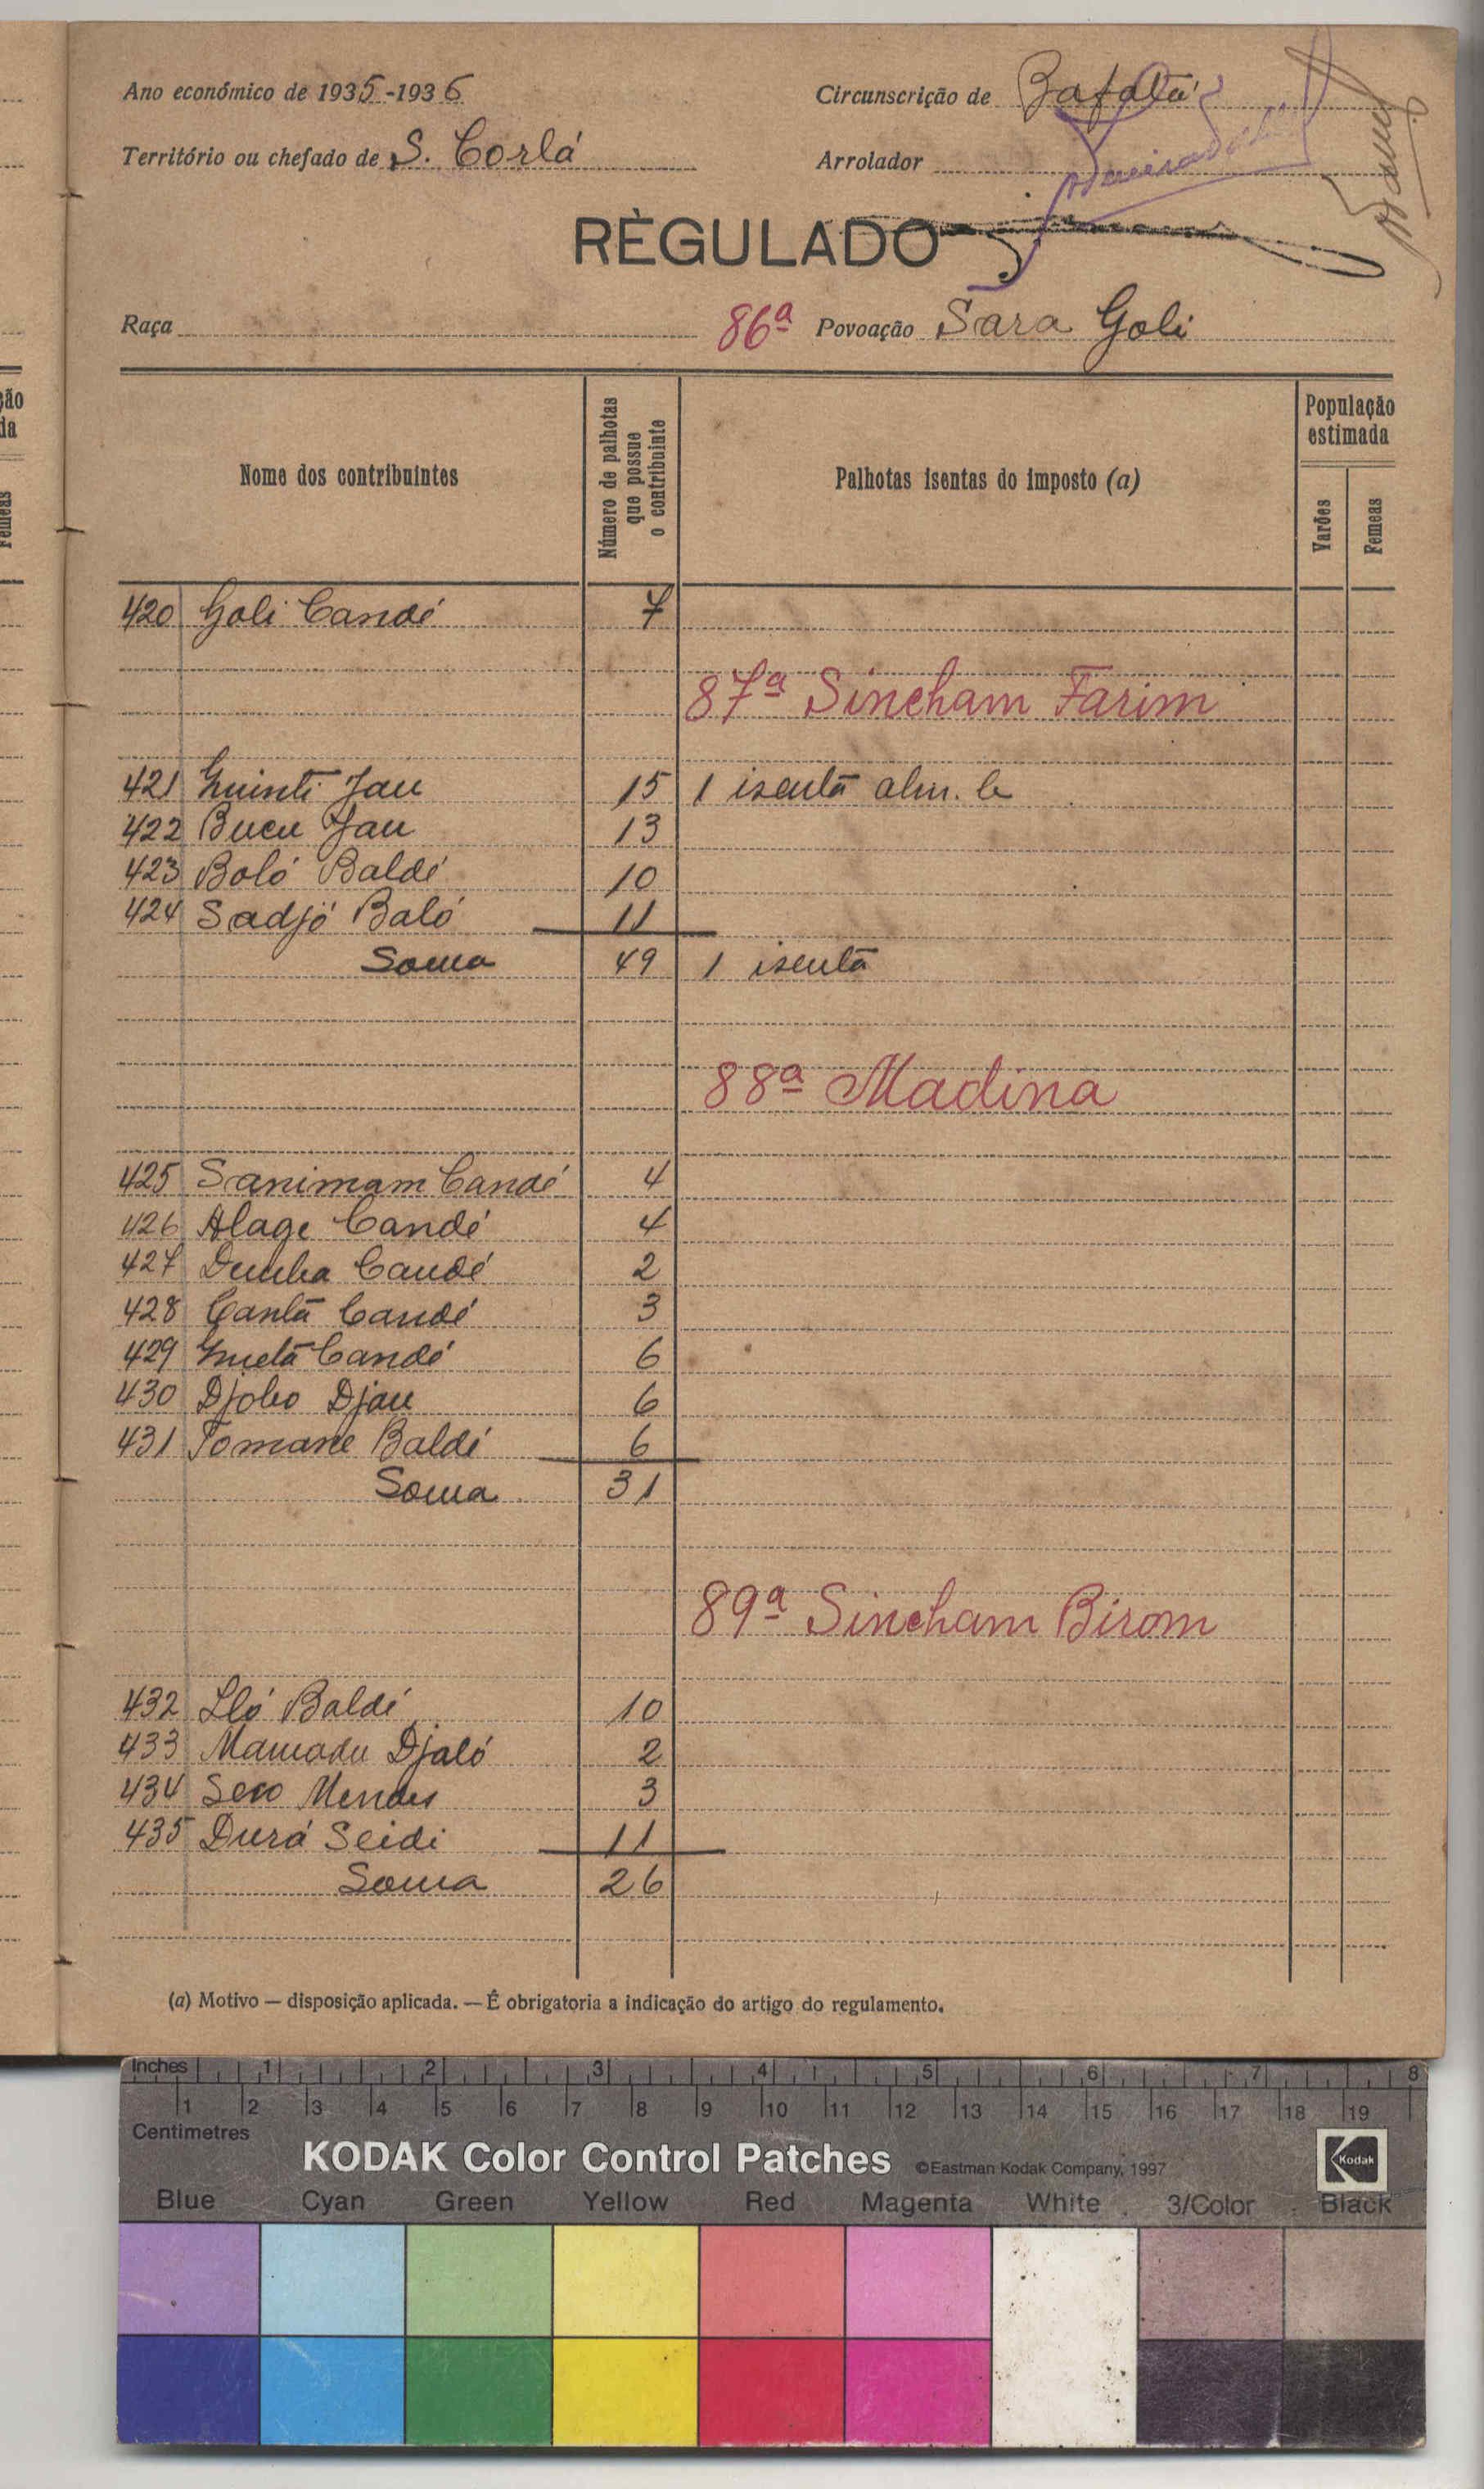 Ano económico de 1935-1936
Circunscrição de Bafatá
Território ou chefado de S. Corlá
Arrolador
RÈGULADO
Raça
86ª Povoação Sara Goli
Nome dos contribuintes
Número de palhotas que possue o contribuinte
Palhotas isentas do imposto (a)
População estimada
Varões
Femeas
420 Goli Candé 7
87ª Sincham Farim
421 Guinti Jau 15 1 isenta alin. b
422 Bucu Jau 13
423 Boló Baldé 10
424 Sadjó Baló 11
Soma 49 1 isenta
88ª Madina
425 Sanimam Candé 4
426 Alage Candé 4
427 Demba Candé 2
428 Cantá Candé 3
429 Guelá Candé 6
430 Djobo Djau 6
431 Tomane Baldé 6
Soma 31
89ª Sincham Birom
432 Iló Baldé 10
433 Mamadu Djaló 2
434 Seco Mendes 3
435 Durá Seidi 11
Soma 26
(a) Motivo — disposição aplicada. — É obrigatoria a indicação do artigo do regulamento.
Inches 1 2 3 4 5 6 7 8
1 2 3 4 5 6 7 8 9 10 11 12 13 14 15 16 17 18 19
Centimetres
KODAK Color Control Patches ©Eastman Kodak Company, 1997 Kodak
Blue Cyan Green Yellow Red Magenta White 3/Color Black